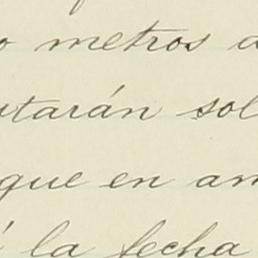 o metros a
utarán sol
que en am
la fecha